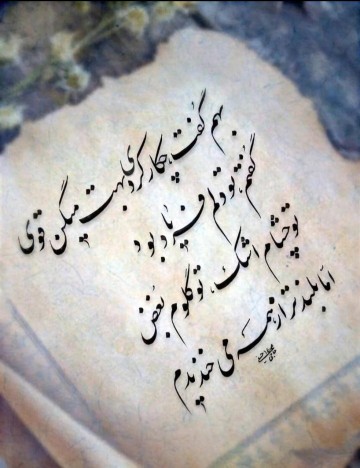 بهم گفت، چکار کردی بهت میگن قوی
گفتم، تو دلم فریاد بود
تو چشام اشک، تو گلوم بغض
اما بلندتر از همه می خندیدم